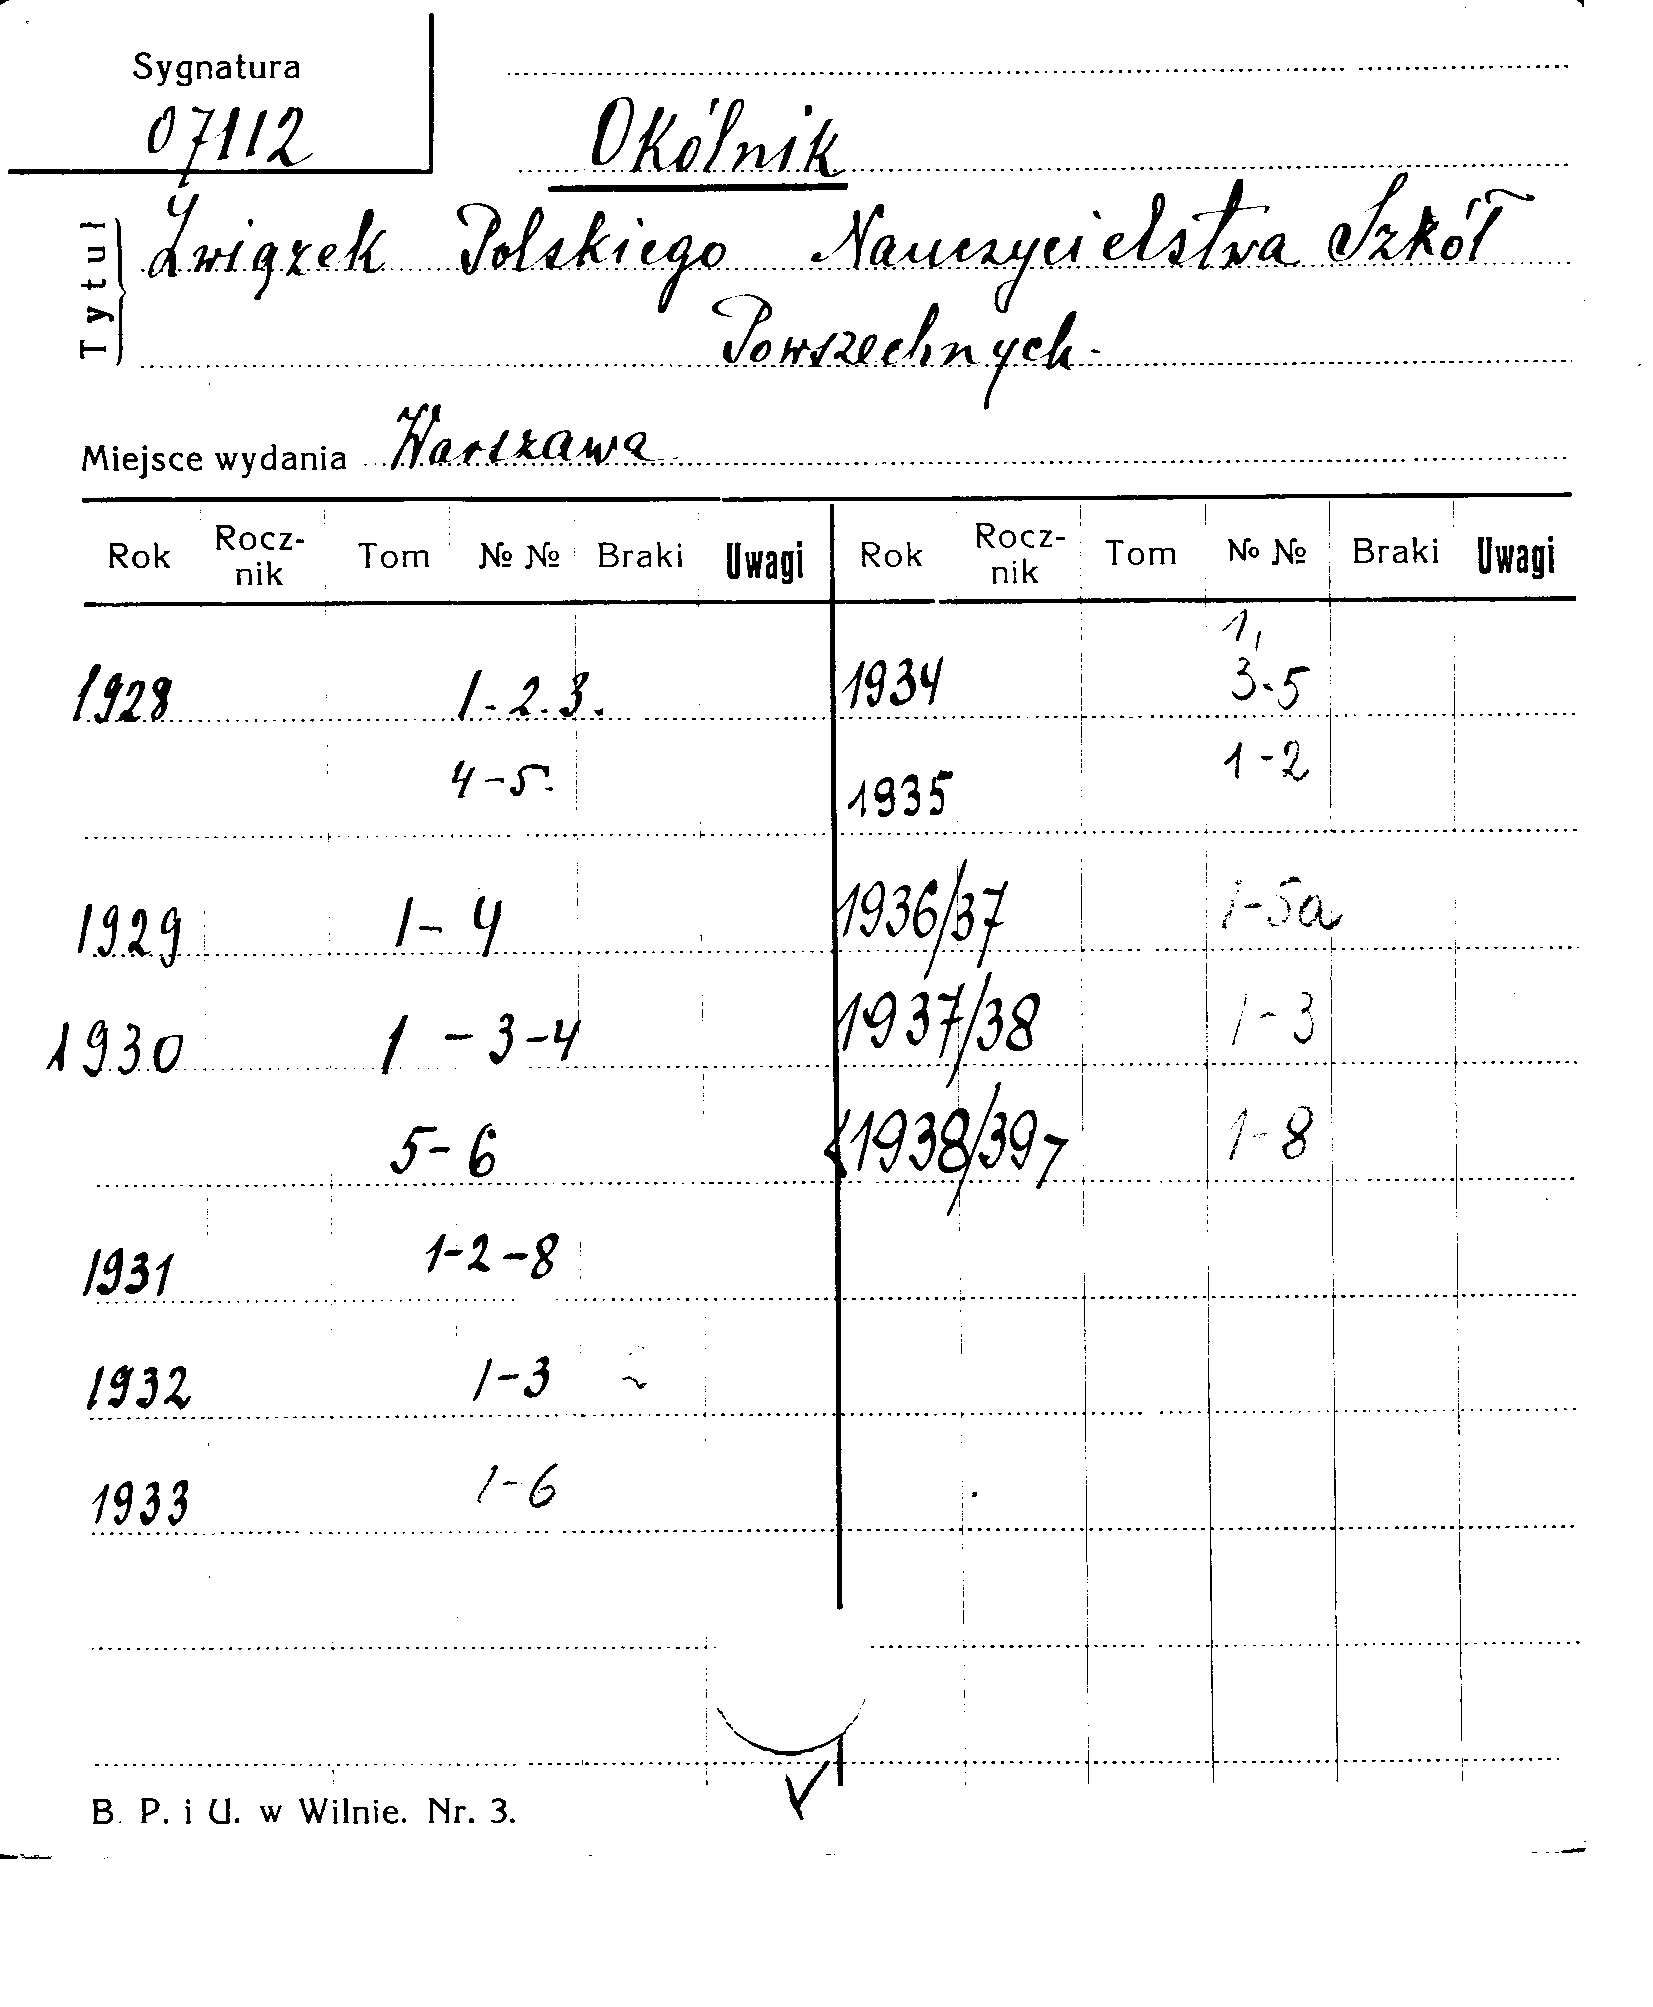 Sygnatura
07112
Okólnik
Tytuł
Związek Polskiego Nauczycielstwa Szkół
Powszechnych.
Miejsce wydania Warszawa
Rok Rocz-nik Tom № № Braki Uwagi Rok Rocz-nik Tom № № Braki Uwagi
1928 1-2.3. 1934 1, 3-5
4-5. 1935 1-2
1929 1-4 1936/37 1-5a
1930 1-3-4 1937/38 1-3
5-6 1938/39 1-8
1931 1-2-8
1932 1-3
1933 1-6
B. P. i U. w Wilnie. Nr. 3.